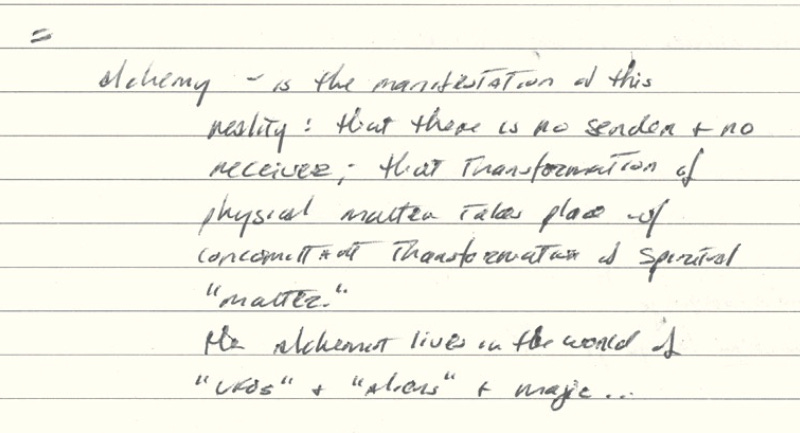 =
alchemy - is the manifestation of this
reality: that there is no sender + no
receiver; that transformation of
physical matter takes place w/
concomittant transformation of spiritual
"matter."
the alchemist lives in the world of
"UFOs" + "aliens" + magic...